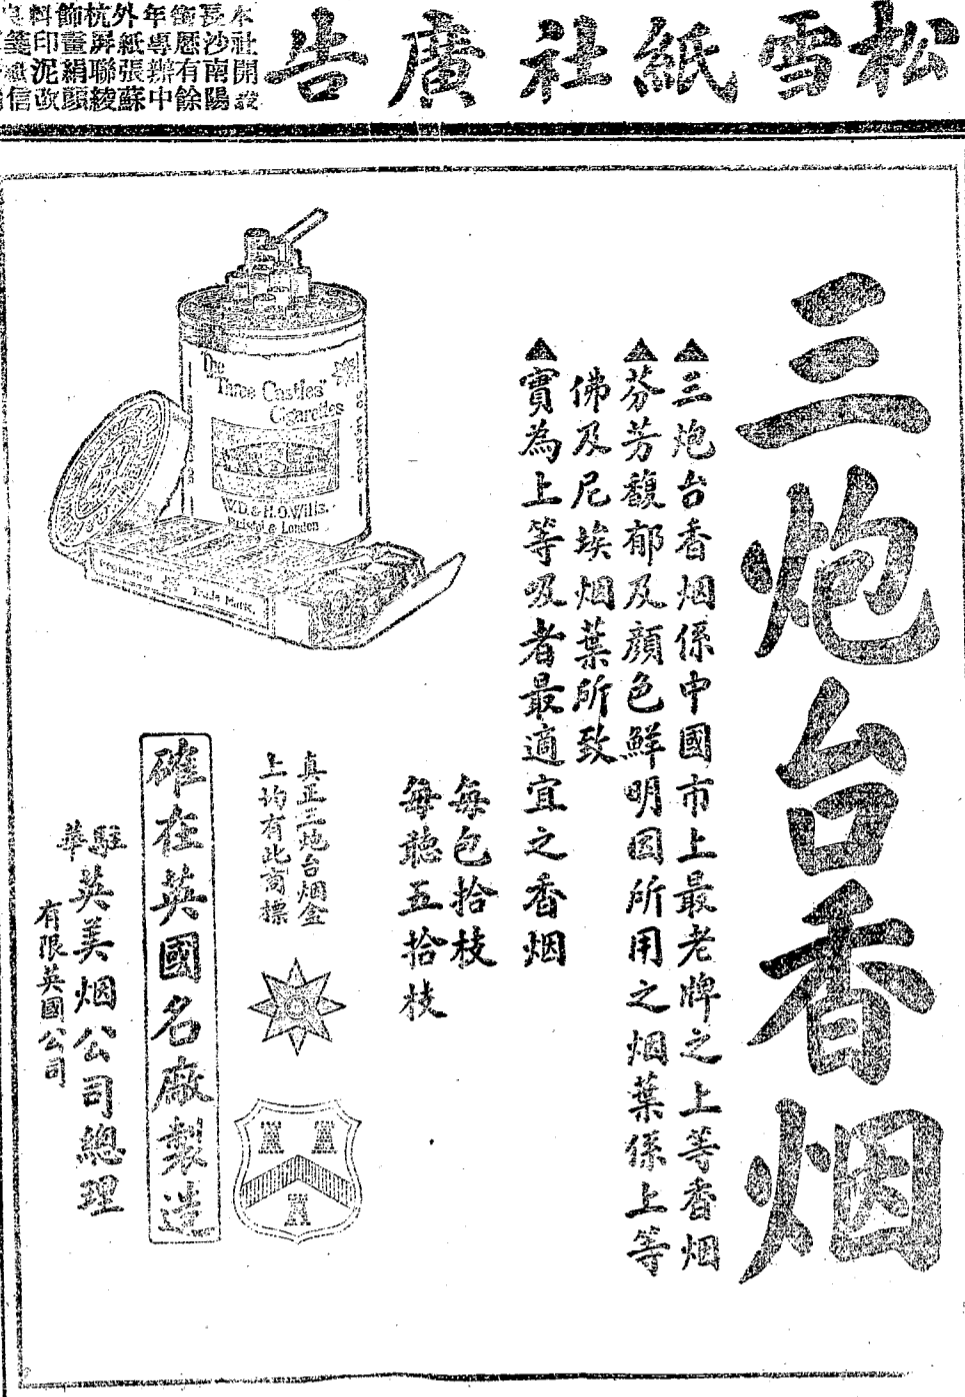 松雪紙社廣告
本社開設
長沙南陽
街歷有餘
年專辦中
外紙張蘇
杭屏聯綾
飾畫絹顏
料印泥改
三炮台香烟
▲三炮台香烟係中國市上最老牌之上等香烟
▲芬芳馥郁及顏色鮮明因所用之烟葉係上等
佛及尼埃烟葉所致
▲實為上等吸者最適宜之香烟
每包拾枝
每聽五拾枝
The
"Three Castles"
Cigarettes
W.D.& H.O.Wills.
Bristol & London
Registered Trade Mark.
真正三炮台烟盒
上均有此商標
確在英國名廠製造
駐華英美烟公司總理
有限英國公司